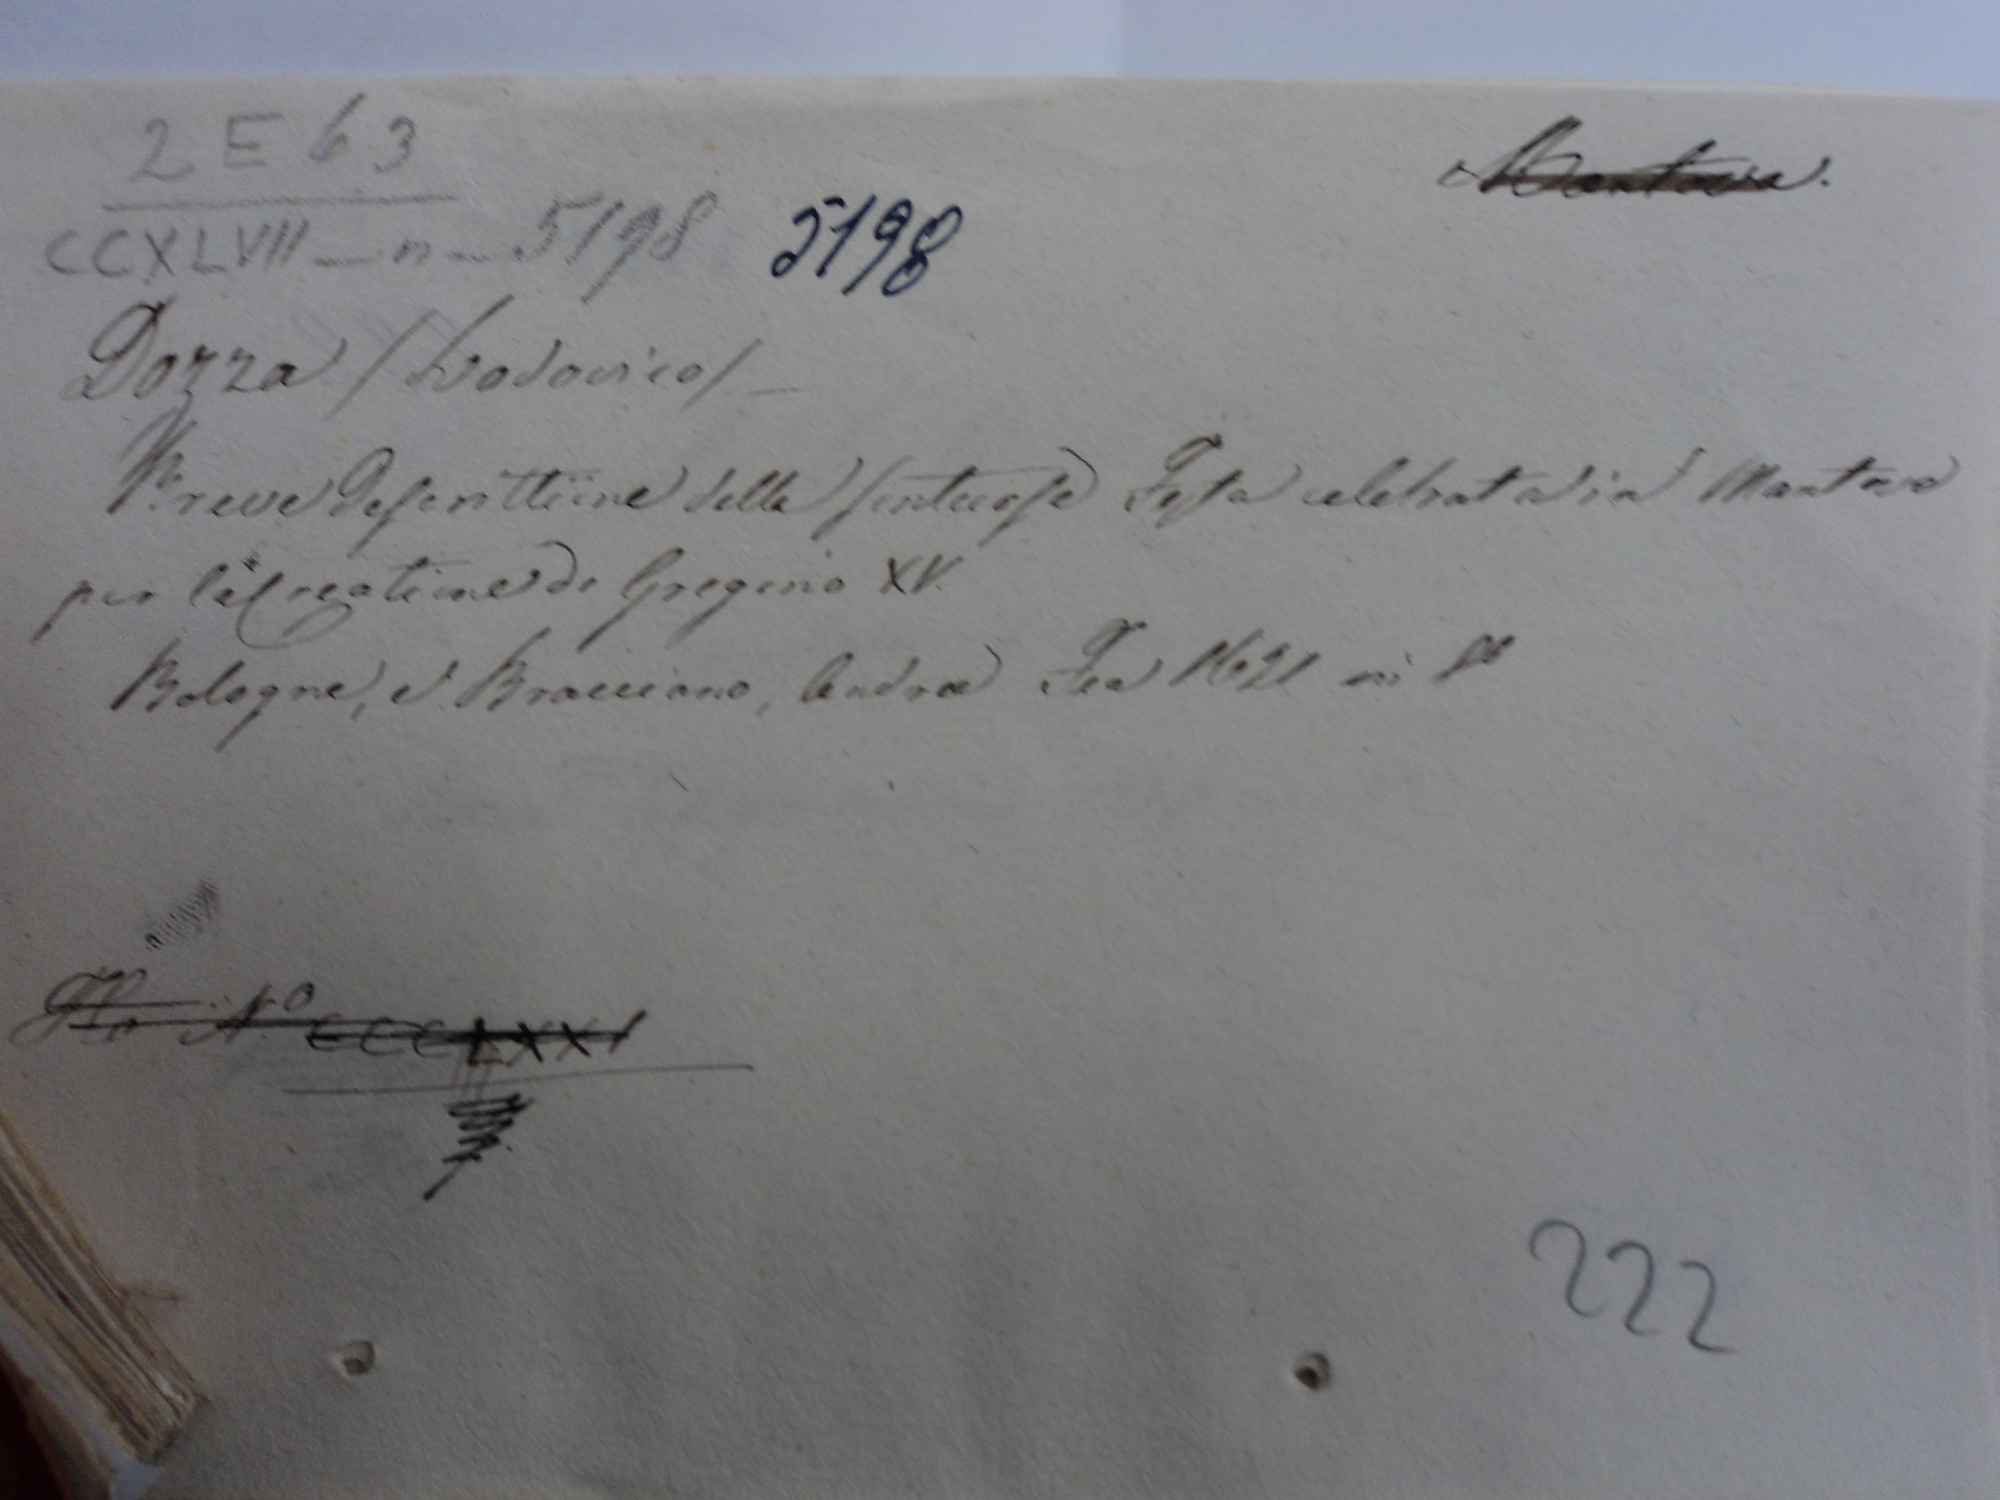 2 E 63
Mantova.
CCXLVII - n - 5198 5198
Dozza / Lodovico / -
Breve Descrittione della sontuosa Festa celebrata in Mantova
per la Creatione di Gregorio XV.
Bologna, e Bracciano, Andrea Fea 1621 in 8º
N.º CCCLXXI
222